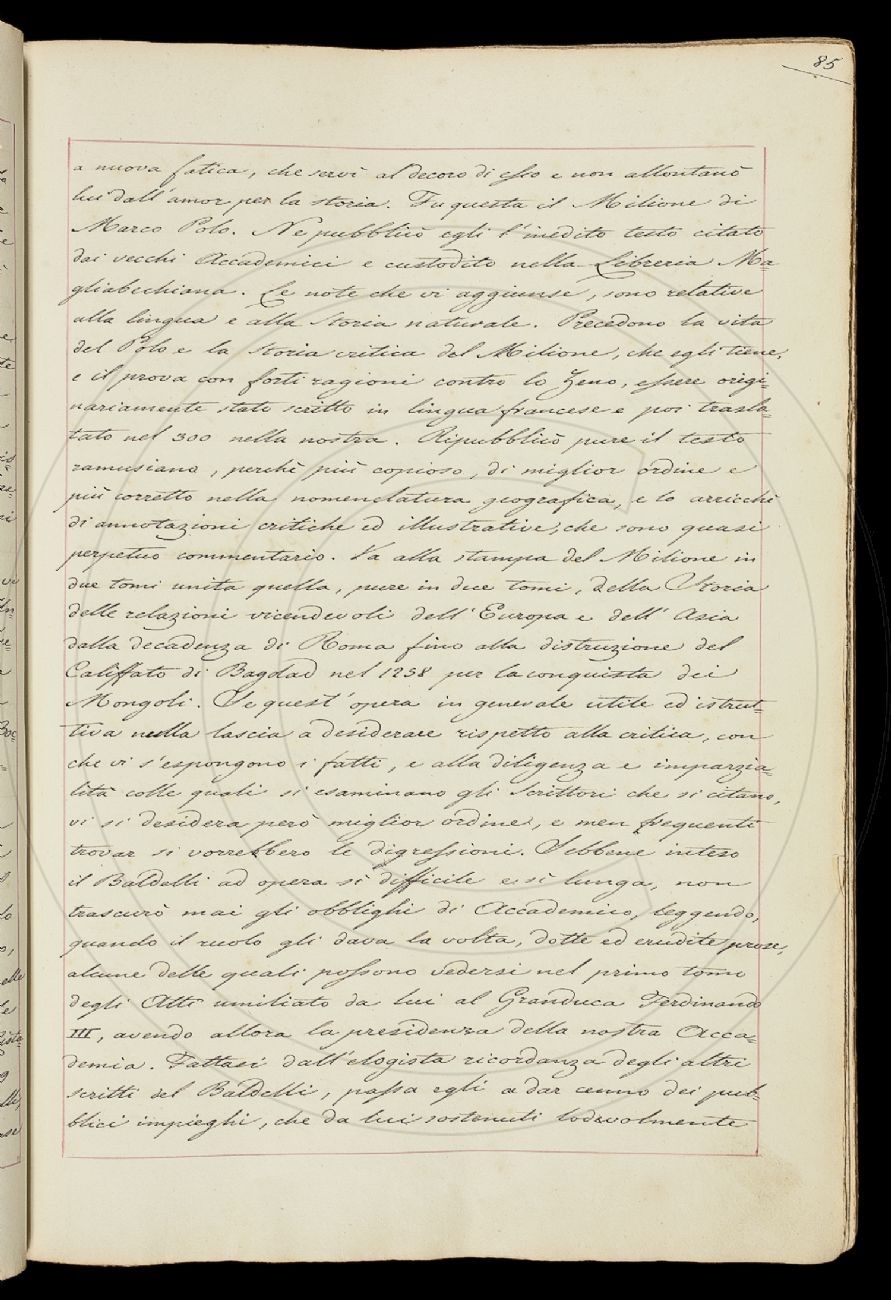 85
a nuova fatica, che servì al decoro di esso e non allontanò
lui dall'amor per la storia. Fu questa il Milione di
Marco Polo. Ne pubblicò egli l'inedito testo citato
dai vecchi Accademici e custodito nella Libreria Ma=
gliabechiana. Le note che vi aggiunse, sono relative
alla lingua e alla storia naturale. Precedono la vita
del Polo e la storia critica del Milione, che egli tiene,
e il prova con forti ragioni contro lo Zeno, essere origi=
nariamente stato scritto in lingua francese e poi trasla=
tato nel 300 nella nostra. Ripubblicò pure il testo
ramusiano, perchè più copioso, di miglior ordine e
più corretto nella nomenclatura geografica, e lo arricchì
di annotazioni critiche ed illustrative, che sono quasi
perpetuo commentario. Va alla stampa del Milione in
due tomi unita quella, pure in due tomi, della Storia
delle relazioni vicendevoli dell'Europa e dell'Asia
dalla decadenza di Roma fino alla distruzione del
Califfato di Bagdad nel 1258 per la conquista dei
Mongoli. Se quest'opera in generale utile ed istrut=
tiva nulla lascia a desiderare rispetto alla critica, con
che vi s'espongono i fatti, e alla diligenza e imparzia=
lità colle quali si esaminano gli Scrittori che si citano,
vi si desidera però miglior ordine, e men frequenti
trovar si vorrebbero le digressioni. Sebbene inteso
il Baldelli ad opera sì difficile e sì lunga, non
trascurò mai gli obblighi di Accademico, leggendo,
quando il ruolo gli dava la volta, dotte ed erudite prose,
alcune delle quali possono vedersi nel primo tomo
degli Atti umiliato da lui al Granduca Ferdinando
III, avendo allora la presidenza della nostra Acca=
demia. Fattasi dall'elogista ricordanza degli altri
scritti del Baldelli, passa egli a dar cenno dei pub=
blici impieghi, che da lui sostenuti lodevolmente